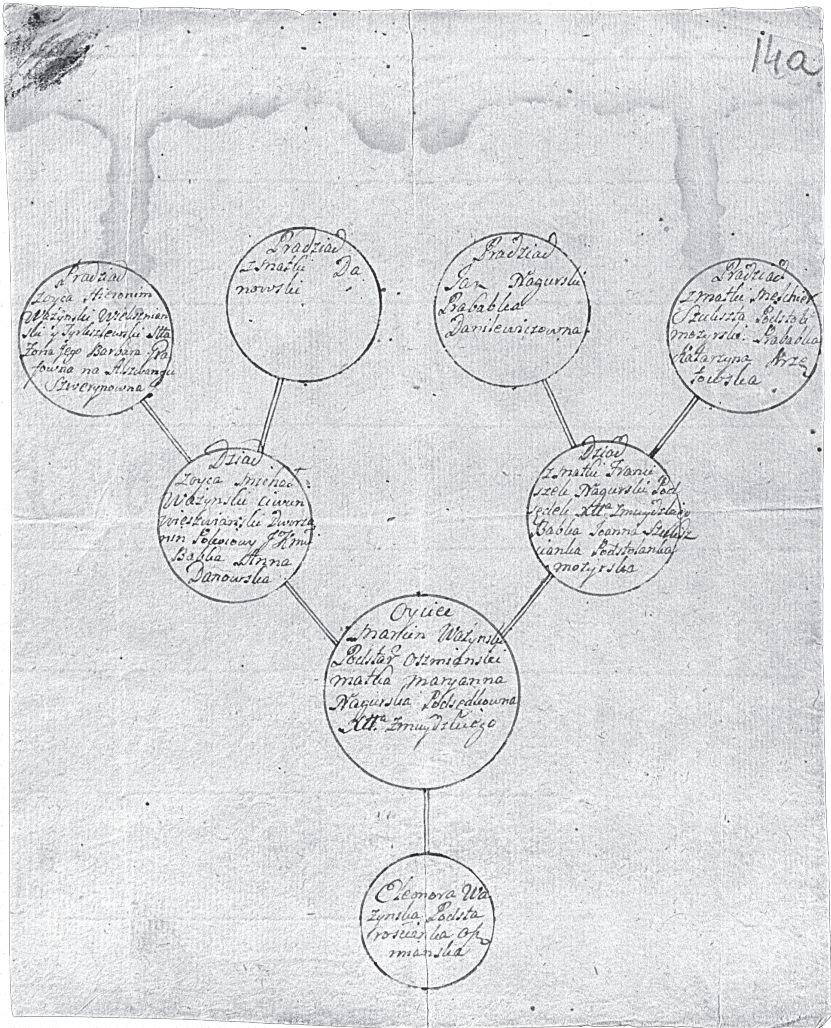 14a
Pradziad
zoyca Hieronim
Ważynski
ski y Tyrkszlewski Stta
Zona Jego Barbara Gra
fowna na
Szwerynowna
Pradziad
z matki Da
nowski
Pradziad
Jan Nagurski
Prababka
Daniewiczowna
Pradziad
z matki
Szuliszta Podstoli
mozyrski Prababka
Katarzyna Krze
Dziad
zoyca Michał
Ważynski Ciwun
Dworza
nin Pokoiowy
Babka Anna
Danowska
Dziad
z matki Franci
szek Nagurski Pod
sędek Xtta Zmuydzkiego
Babka Joanna Szulisz
cianka Podstolanka
mozyrska
Oyciec
Marcin Ważynski
Podstar Oszmianski
matka Maryanna
Nagurska Podsędkowna
Xtta Zmuydzkiego
Eleonora Wa
zynska Podsta
roscianka Osz
mianska